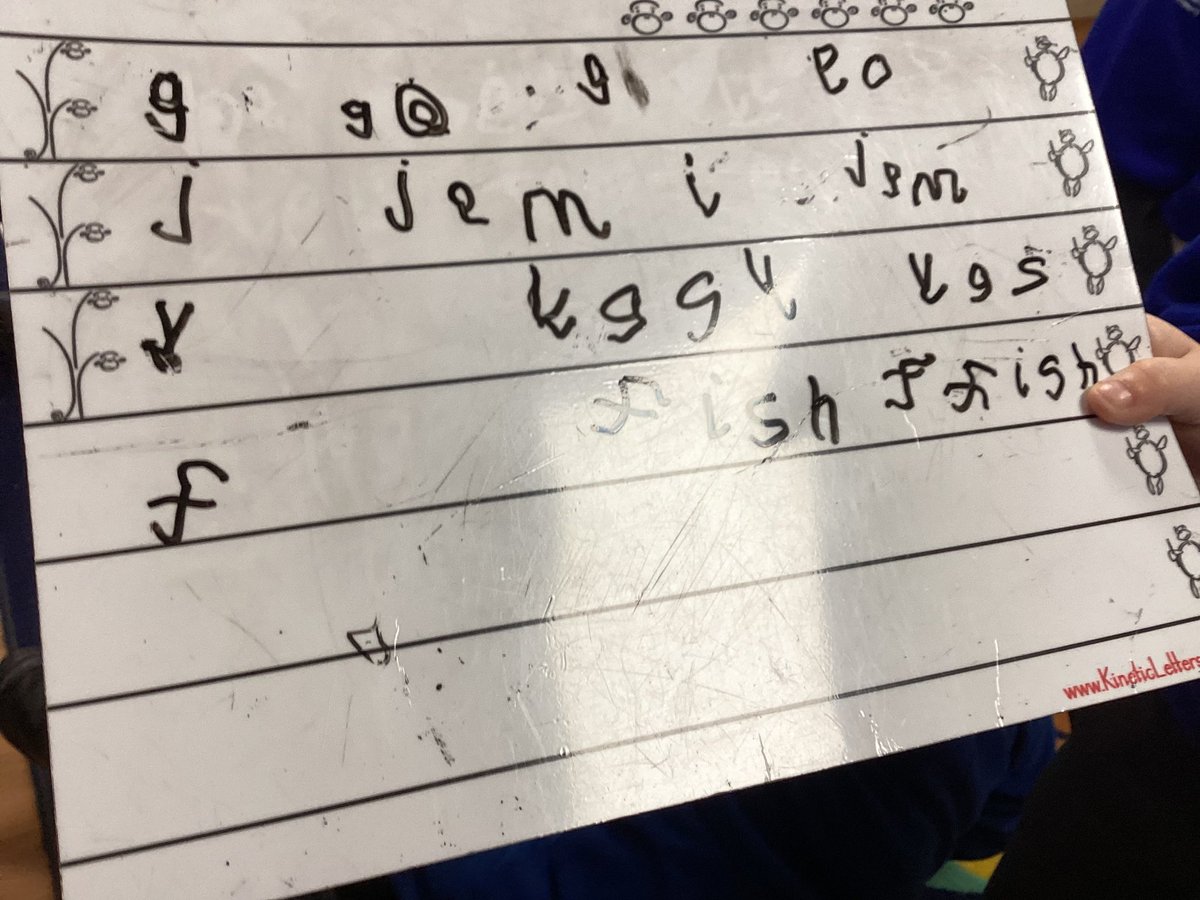 g go g go
j jem j jem
k kggk kgs
f fish f fish
www.KineticLetters